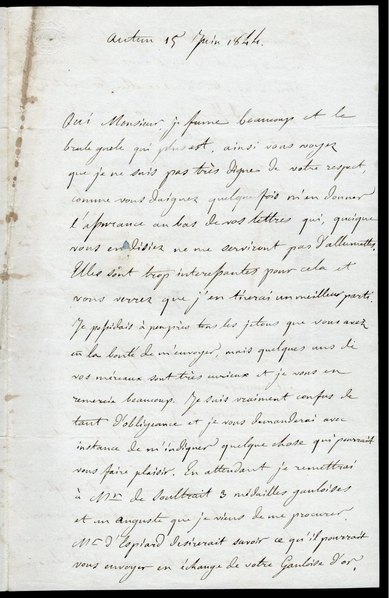 Autun 15 Juin 1844.
Oui Monsieur je fume beaucoup et le
brule guele qui plus est, ainsi vous voyez
que je ne suis pas très digne de votre respect
comme vous daignez quelque fois m'en donner
l'assurance au bas de vos lettres qui, quoique
vous en disiez ne me serviront pas d'allumettes.
Elles sont trop interessantes pour cela et
vous verrez que j'en tirerai un meilleur parti.
Je possédais à peu près tous les jetons que vous avez
eu la bonté de m'envoyer, mais quelques uns de
vos méreaux sont très curieux et je vous en
remercie beaucoup. Je suis vraiment confus de
tant d'obligeance et je vous demanderai avec
instance de m'indiquer quelque chose qui pourrait
vous faire plaisir. En attendant je remettrai
à Mr de Soultrait 3 médailles gauloises
et un auguste que je viens de me procurer.
Mr d'Espiard desirerait savoir ce qu'il pourrait
vous envoyer en échange de votre Gauloise d'or.